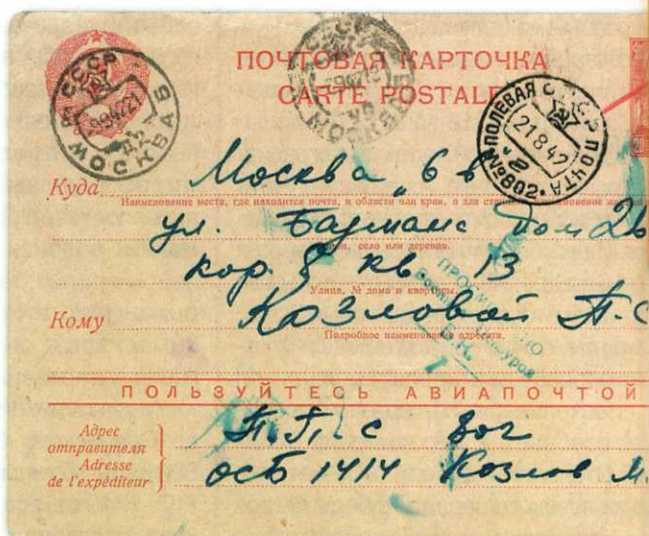 ПОЧТОВАЯ КАРТОЧКА
CARTE POSTALE
СССР
МОСКВА
ПОЛЕВАЯ ПОЧТА
№802
21 8 42
Куда Москва 66
Наименование места, где находится почта, и области или края, а для
ул. Баумана Дом 2
село или деревня.
кор. кв 13
Улица, № дома и квартиры.
Кому Козловой П. С
Подробное наименование адресата.
ПОЛЬЗУЙТЕСЬ АВИАПОЧТОЙ
Адрес
отправителя
Adresse
de l'expéditeur
П.П.С
осб 1414 Козлов М.